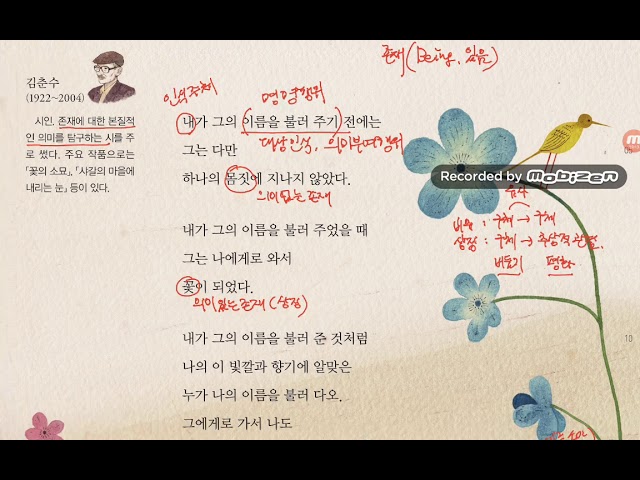 존재(Being, 있음)
김춘수
(1922~2004)
시인. 존재에 대한 본질적
인 의미를 탐구하는 시를 주
로 썼다. 주요 작품으로는
「꽃의 소묘」, 「샤갈의 마을에
내리는 눈」 등이 있다.
인식주체
명명행위
내가 그의 이름을 불러 주기 전에는
대상인식, 의미부여행위
그는 다만
하나의 몸짓에 지나지 않았다.
의미없는 존재
내가 그의 이름을 불러 주었을 때
그는 나에게로 와서
꽃이 되었다.
의미있는 존재(상징)
내가 그의 이름을 불러 준 것처럼
나의 이 빛깔과 향기에 알맞은
누가 나의 이름을 불러 다오.
그에게로 가서 나도
05
Recorded by MOBIZEN
M
비유: 구체 → 구체
상징: 구체 → 추상적 관념.
비둘기 평화
10